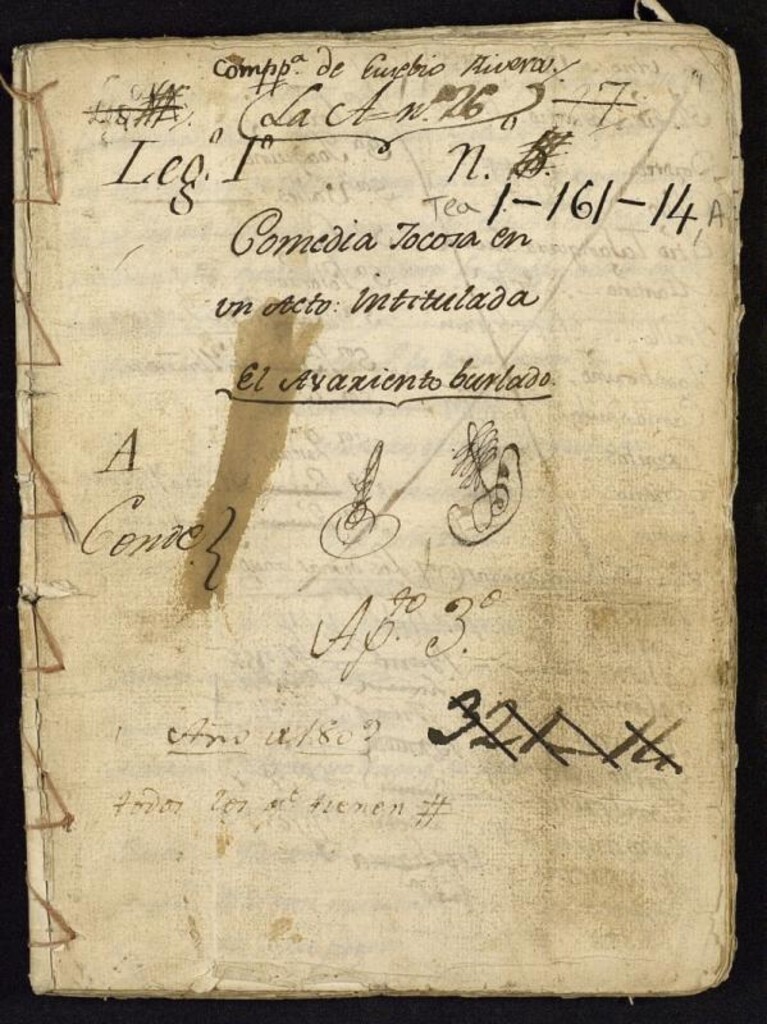 Compp.ª de Eusebio Rivera
(La A= n.º 26) 27
Leg.º 1º n.º
Tea 1-161-14, A
Comedia Jocosa en
un Acto: Intitulada
El Avariento burlado.
A
Conde {
Ap.to 3º
Año d 1803
todos los q.e tienen #
321-14